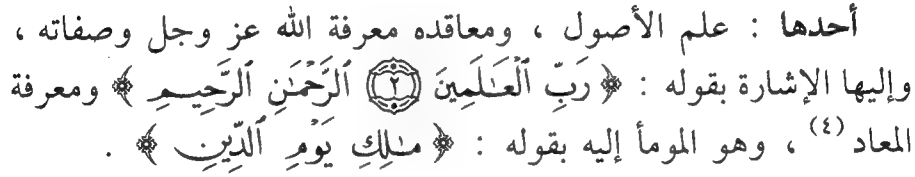 أحدها : علم الأصول ، ومعاقده معرفة الله عز وجل وصفاته ،
وإليها الإشارة بقوله : ﴿ رَبِّ ٱلْعَـٰلَمِينَ ٢ ٱلرَّحْمَـٰنِ ٱلرَّحِيمِ ﴾ ومعرفة
المعاد (٤) ، وهو المومأ إليه بقوله : ﴿ مَـٰلِكِ يَوْمِ ٱلدِّينِ ﴾ .